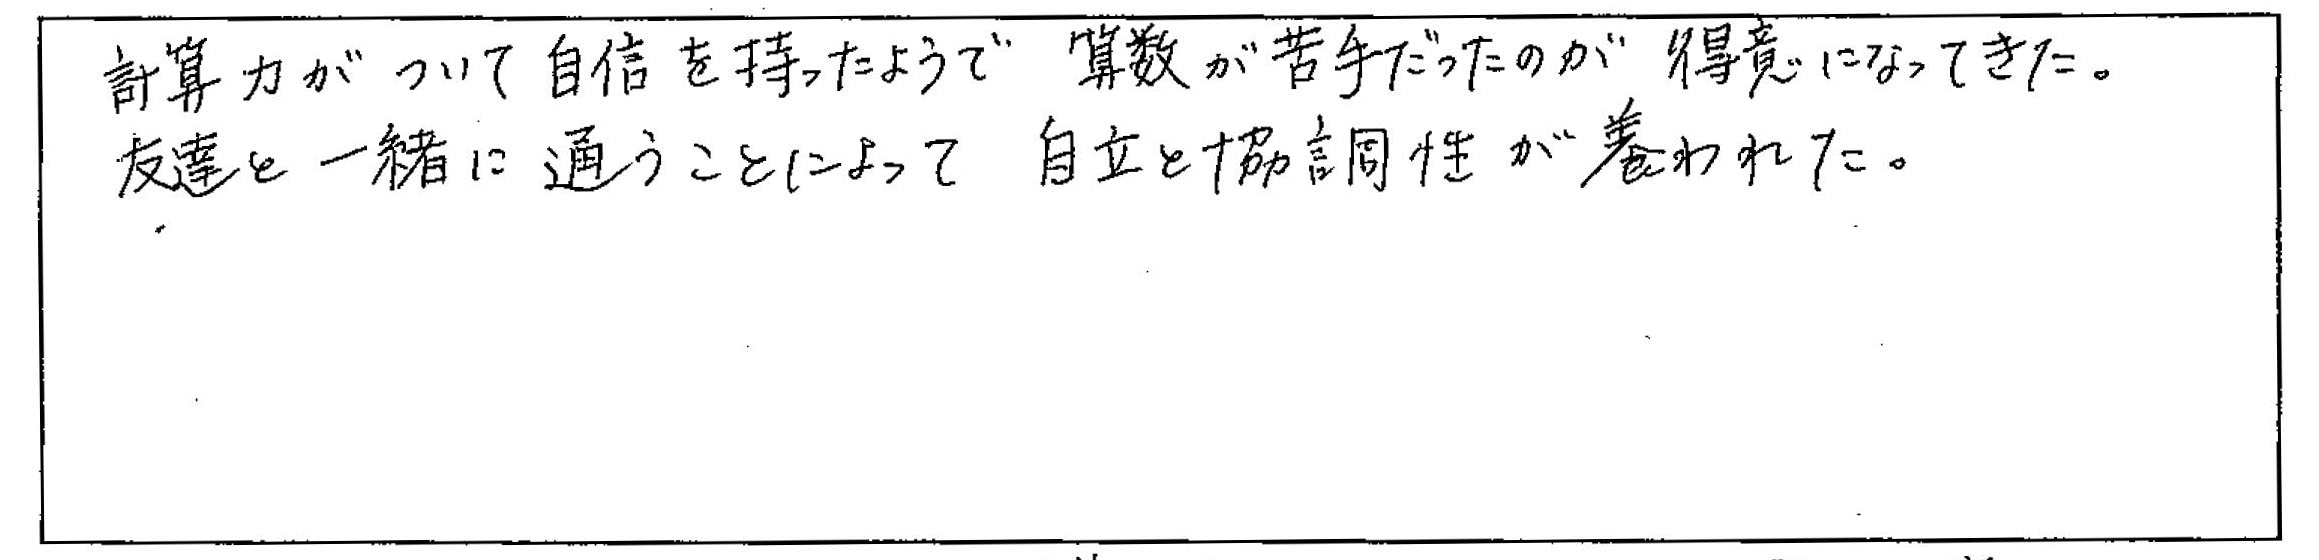 計算力がついて自信を持ったようで 算数が苦手だったのが 得意になってきた。
友達と一緒に通うことによって 自立と協調性が養われた。